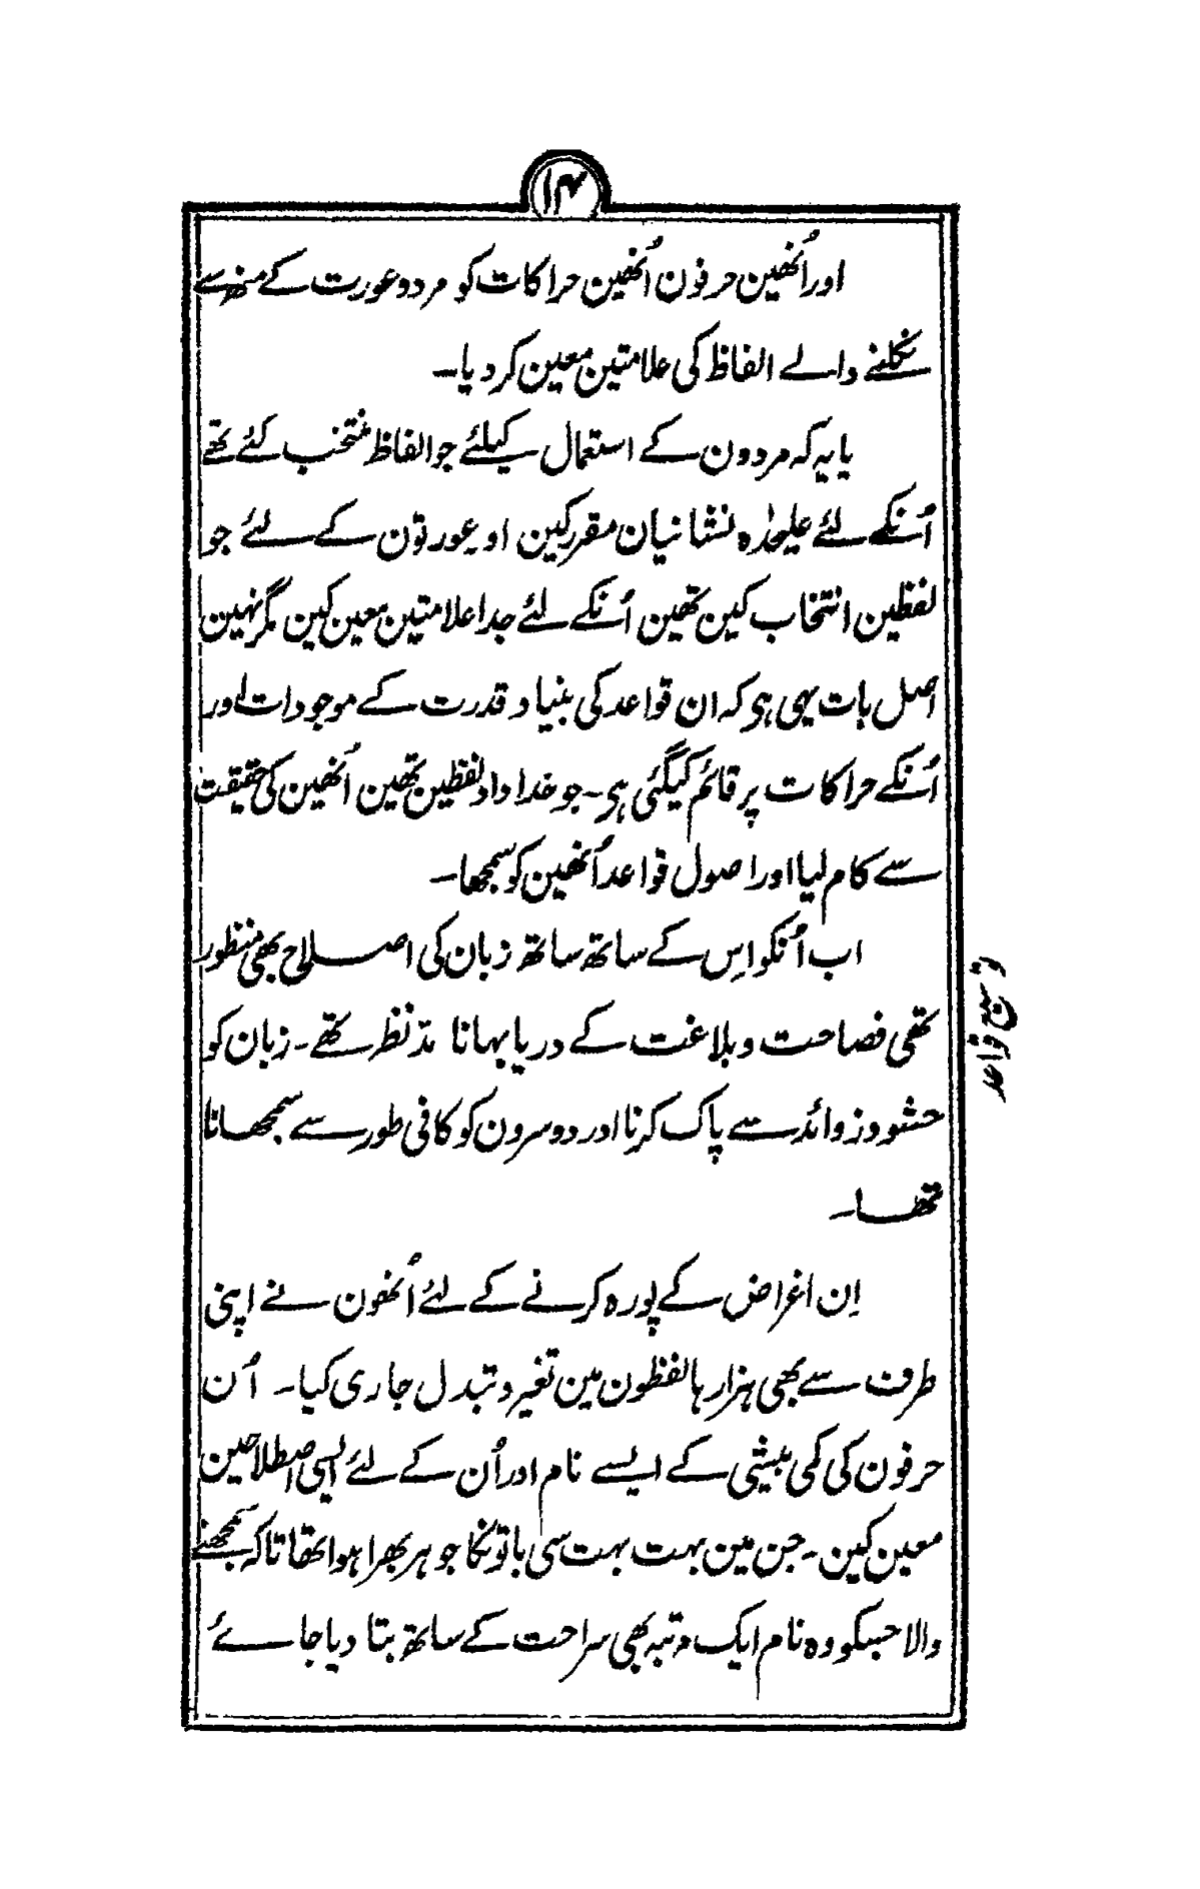 ۱۴
اور اُنھین حرفون اُنھین حراکات کو مرد و عورت کے منہ سے
نکلنے والے الفاظ کی علامتین معین کر دیا۔
یا یہ کہ مردون کے استعمال کیلئے جو الفاظ منتخب کئے تھے
اُنکے لئے علیحدٰہ نشانیان مقرر کین اور عورتون کے لئے جو
لفظین انتخاب کین تھین اُنکے لئے جدا علامتین معین کین مگر نہین
اصل بات یہی ہی کہ ان قواعد کی بنیاد قدرت کے موجودات اور
اُنکے حراکات پر قائم کیگئی ہی۔ جو خداداد لفظین تھین اُنھین کی حقیقت
سے کام لیا اور اصول قواعد اُنھین کو سمجھا۔
اب اُنکو اِس کے ساتھ ساتھ زبان کی اصلاح بھی منظور
تھی فصاحت و بلاغت کے دریا بہانا مدنظر تھے۔ زبان کو
حشو و زوائد سے پاک کرنا اور دوسرون کو کافی طور سے سمجھانا
تھا۔
اِن اغراض کے پورہ کرنے کے لئے اُنھون نے اپنی
طرف سے بھی ہزارہا لفظون مین تغیر و تبدل جاری کیا۔ اُن
حرفون کی کمی بیشی کے ایسے نام اور اُن کے لئے ایسی اصطلاحین
معین کین۔ جن مین بہت بہت سی باتونکا جوہر بھرا ہوا تھا تاکہ سمجھنے
والا جسکو وہ نام ایک مرتبہ بھی سراحت کے ساتھ بتا دیا جائے
توسیع قواعد